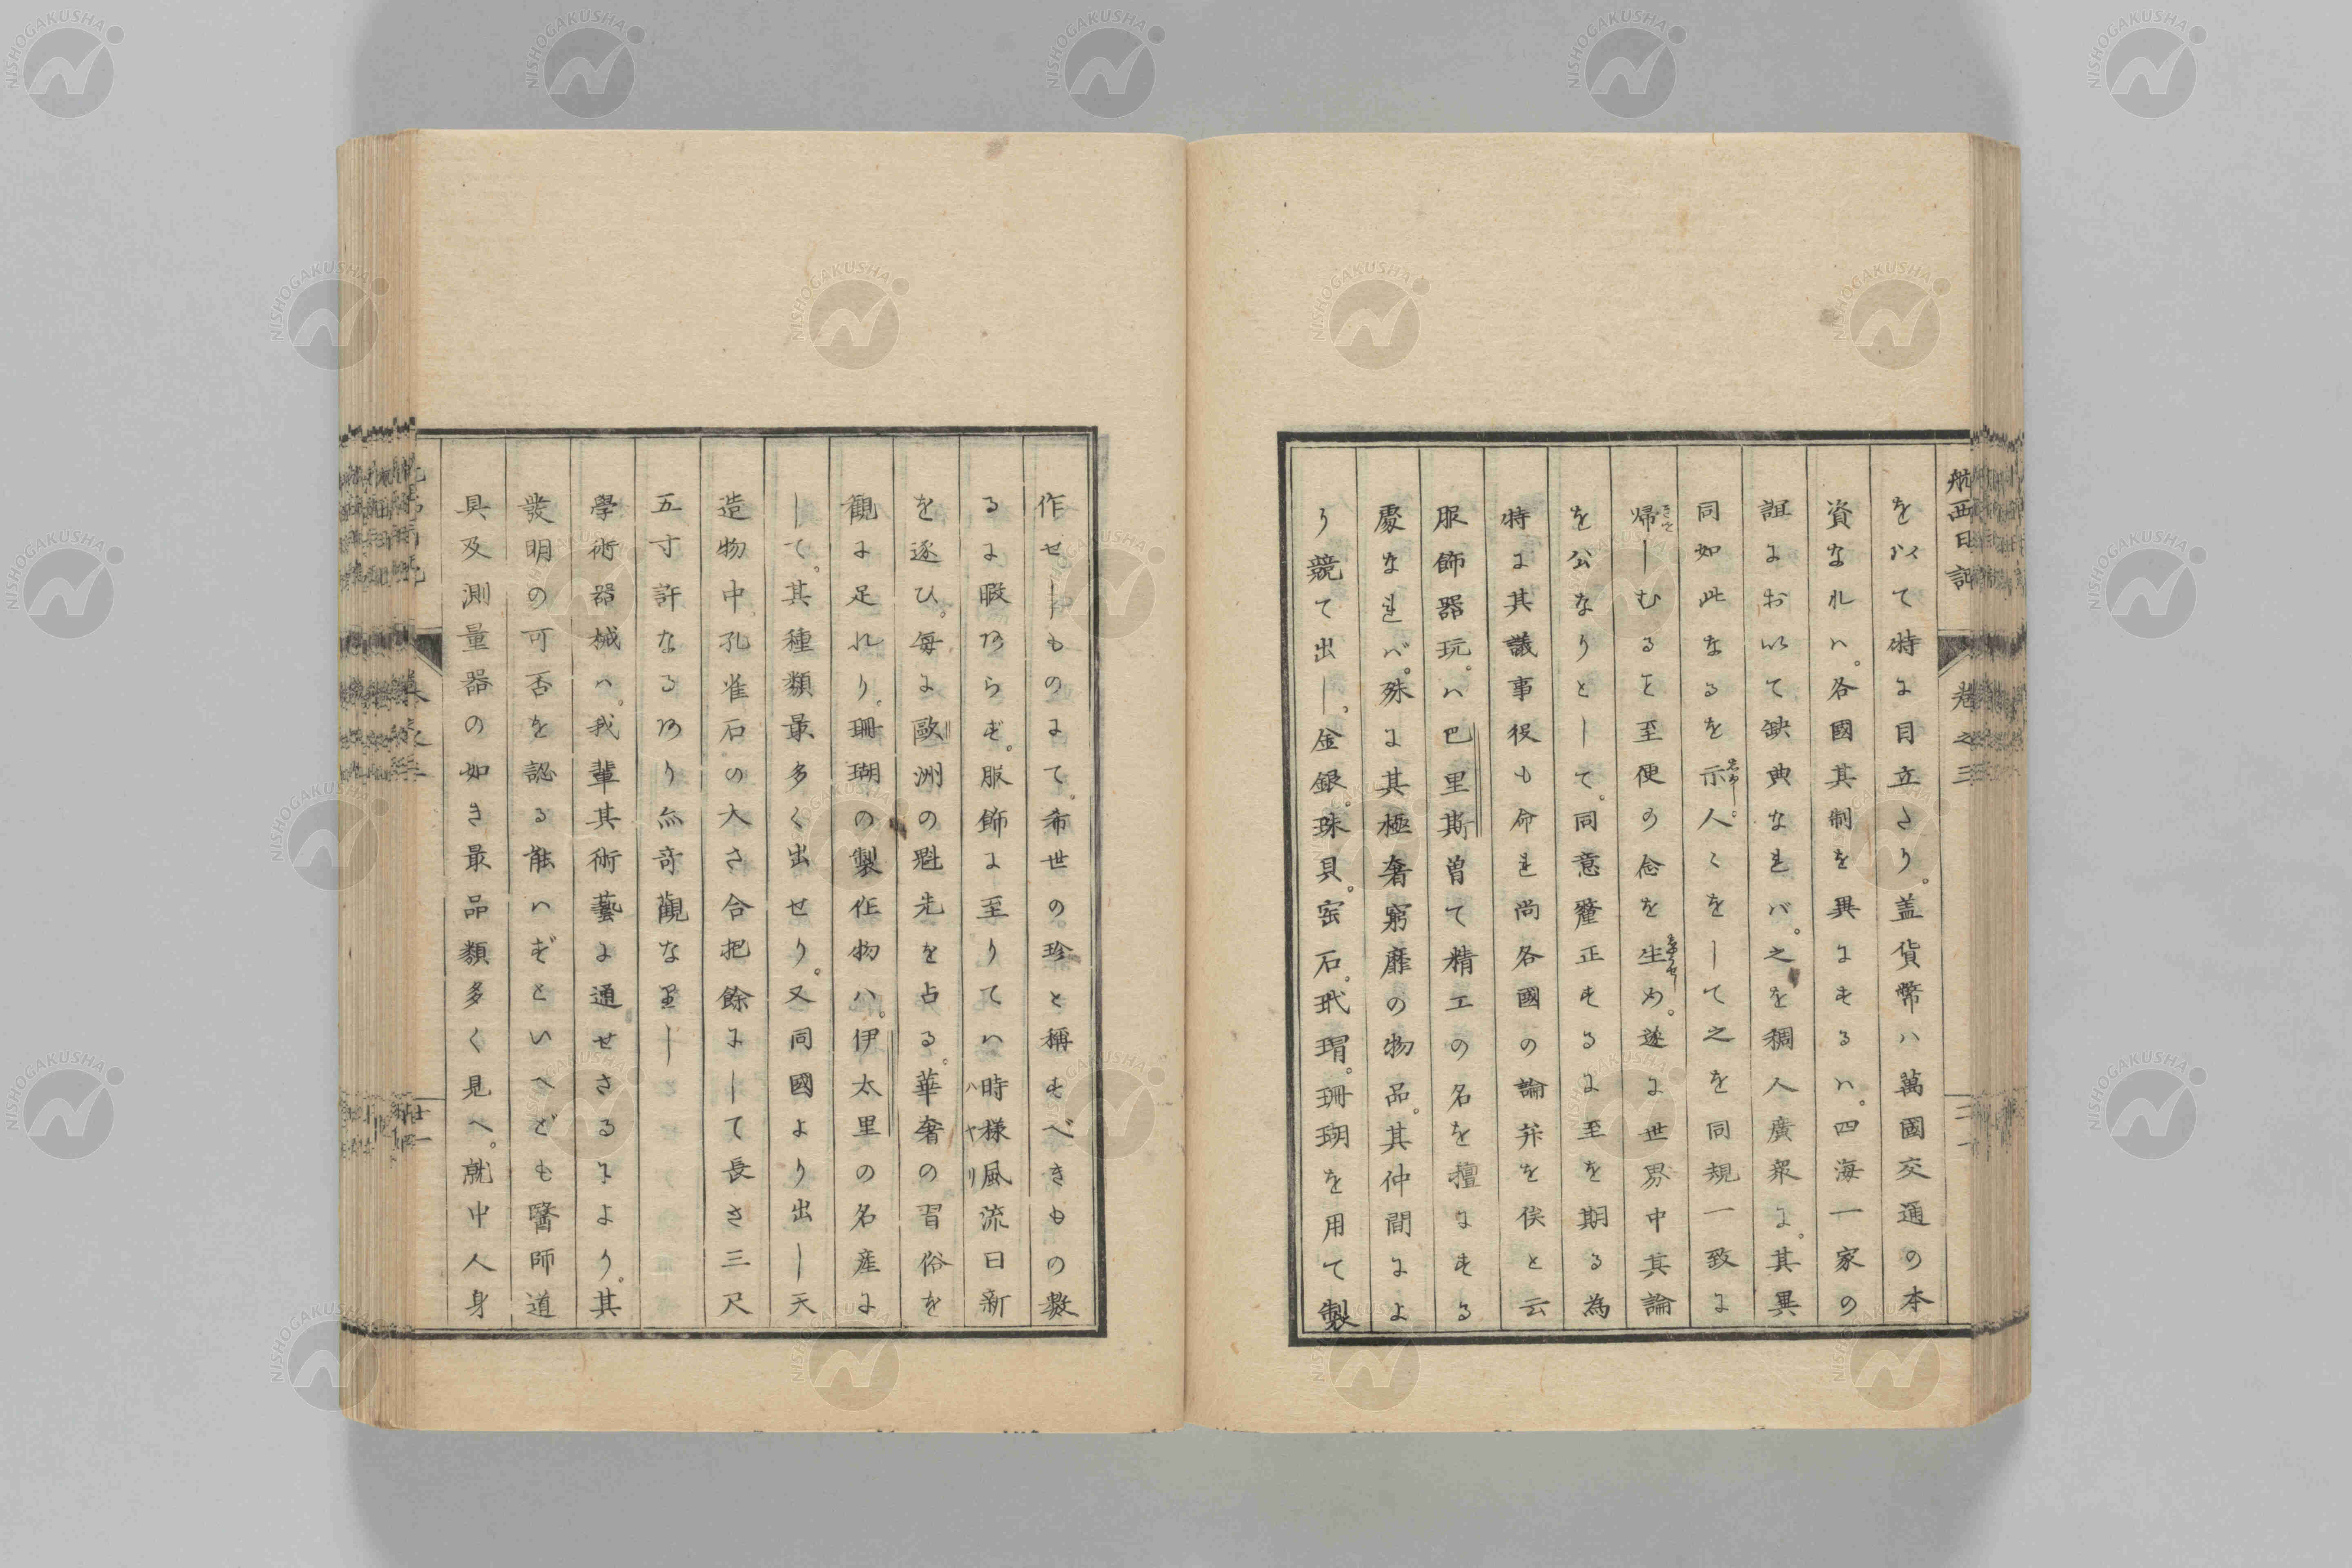 航西日記 巻之三 三十
を以て特に目立たり。盖貨幣ハ萬國交通の本
資なれハ。各國其制を異にするハ。四海一家の
誼において缺典なれバ。之を稠人廣衆に。其異
同如此なるを示し。人〻をして之を同規一致に
帰しむるを至便の念を生せしめ。遂に世界中其論
を公なりとして。同意釐正するに至を期る為
特に其議事役も命し尚各國の論弁を俟と云
服飾器玩。ハ巴里斯曽て精工の名を擅にする
處なれバ。殊に其極奢窮靡の物品。其仲間によ
り競て出し。金銀。珠貝。宝石。玳瑁。珊瑚を用て製
作せしものにて。希世の。珍と稱すべきもの数
るに暇あらず。服飾に至りてハ時様風流日新
ハヤリ
を逐ひ。毎に歐洲の魁先を占る。華奢の習俗を
観に足れり。珊瑚の製作物ハ。伊太里の名産に
して。其種類最多く出せり。又同國より出し天
造物中孔雀石の大さ合把餘にして長さ三尺
五寸許なるあり尓奇觀なりし
學術器械ハ。我輩其術藝に通せさるより。其
發明の可否を認る能ハずといへども醫師道
具及測量器の如き最品類多く見へ。就中人身